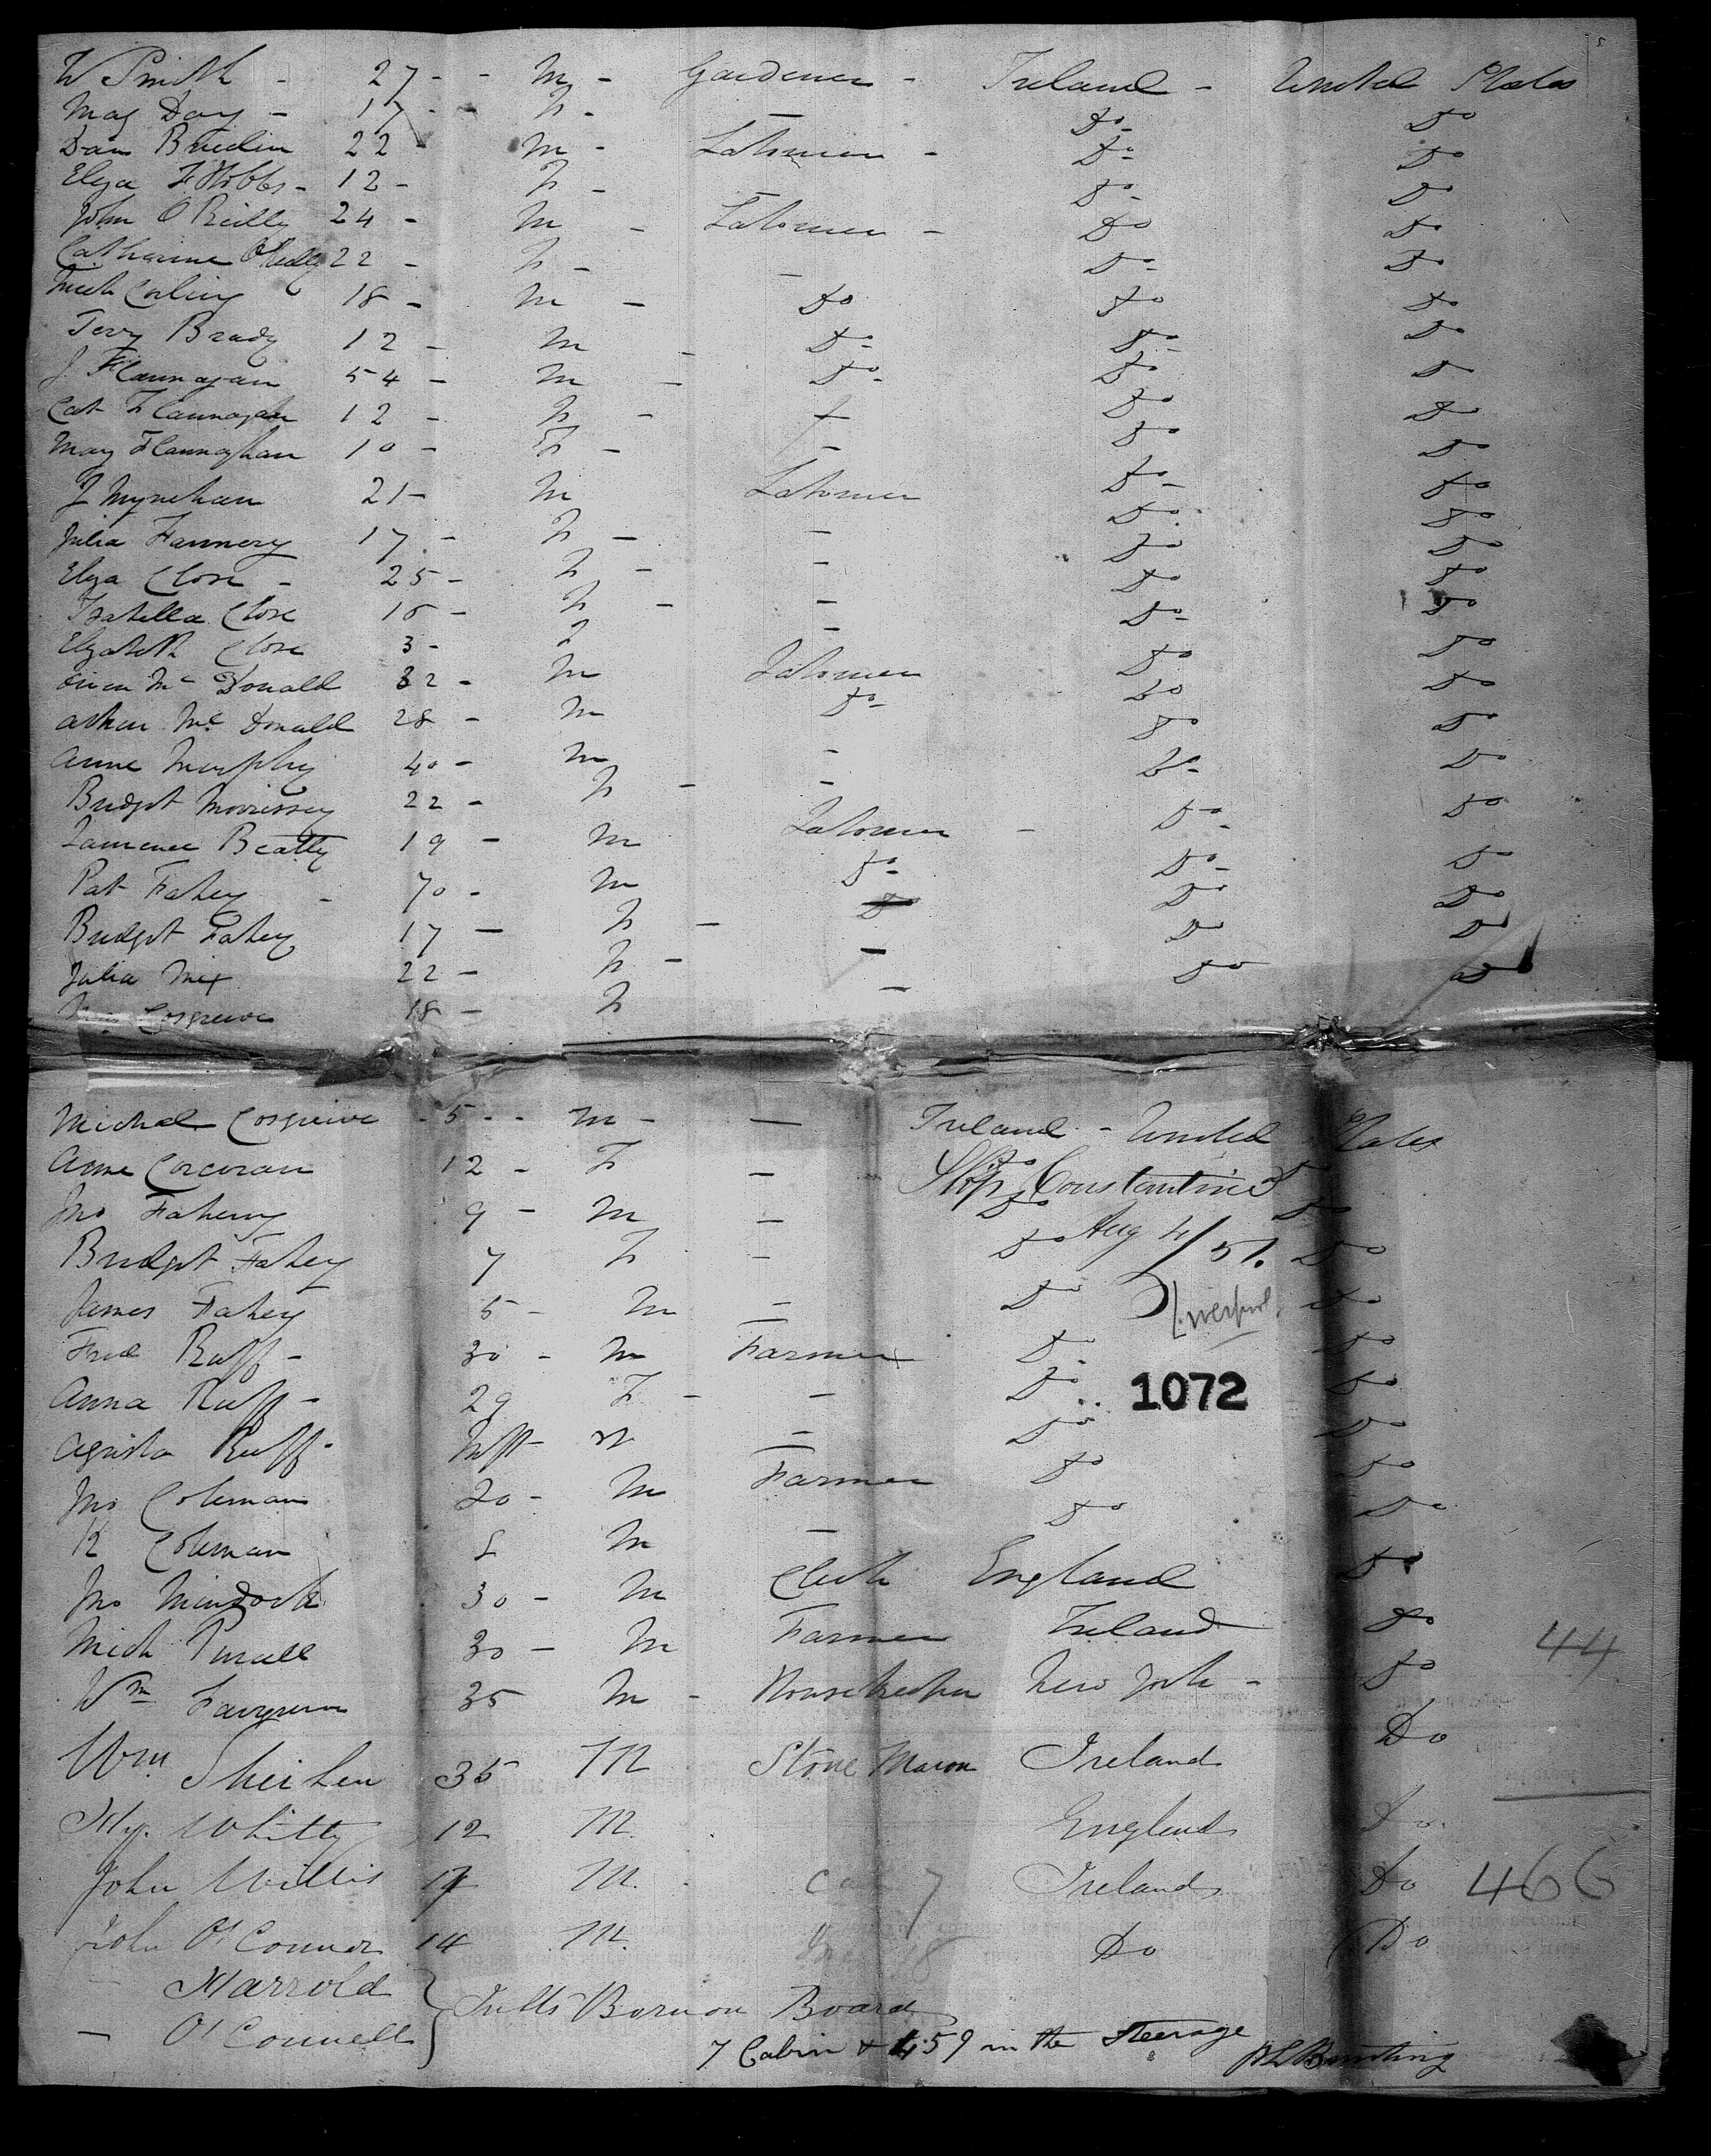 W Smith - 27 - - M - Gardener - Ireland - United States
Mag Day - 17 - - F - — Do - Do
Dan Breslin 22 M - Labourer - Do - Do
Eliza F Hobbs - 12 - F - Do - Do
John O Reilly 24 - M - Labourer - Do Do
Catharine O Reilly 22 - F - — Do - Do
Mich 18 - M - Do Do Do
Terry Brady 12 - M - Do - Do - Do
J Flannagan 54 - M - Do - Do Do
Cat Flannagan 12 - F - — Do Do
Mary Flannaghan 10 - F - — Do Do
J Mynehan 21 - M Labourer Do - Do
Julia Flannery 17 - F - — Do Do
Eliza Close - 25 - F - — Do Do
Isabella Close 18 - F - — Do Do
Elizabeth Close 3 - F — Do - Do
Owen Mc Donald 32 - M Labourer Do Do
Arthur Mc Donald 28 - M Do - Do Do
Anne Murphy 40 - M — Do Do
Bridget Morrissey 22 - F - — Do - Do
Laurence Beatty 19 - M Labourer - Do - Do
Pat Fahey - 70 - M Do - Do - Do
Bridget Fahey 17 — F - Do Do
Julia Mix 22 - F - — Do Do
Cosgreive 18 - F — Do Do
Michael Cosgreive - 5 - - M - — Ireland - United States
Anne Corcoran 12 - F — Do Do
Ship Constantine
Jno Fahey 9 - M — Do Do
Aug 4/51.
Bridget Fahey 7 F — Do Do
Liverpool
James Fahey 5 - M — Do Do
Fred Ruff - 30 - M Farmer Do Do
Anna Ruff - 29 F - — Do Do
1072
Ruff - Inft — Do Do
Jno Coleman 20 - M Farmer Do Do
K Coleman M — Do Do
Jno Murdock 30 - M Clerk England Do
Mich Pursell 30 - M Farmer Ireland Do
44
Wm 35 M - Housekeeper New York - Do
Wm Sheilen 35 M Stone Mason Ireland Do
Hy. Whitty 12 M. England Do.
John Willis 17 M. Ireland Do
466
John O'Connor 14 M. Do Do
Harrold
— O'Connell } Infts Born on Board
7 Cabin & 459 in the Steerage
Bunting